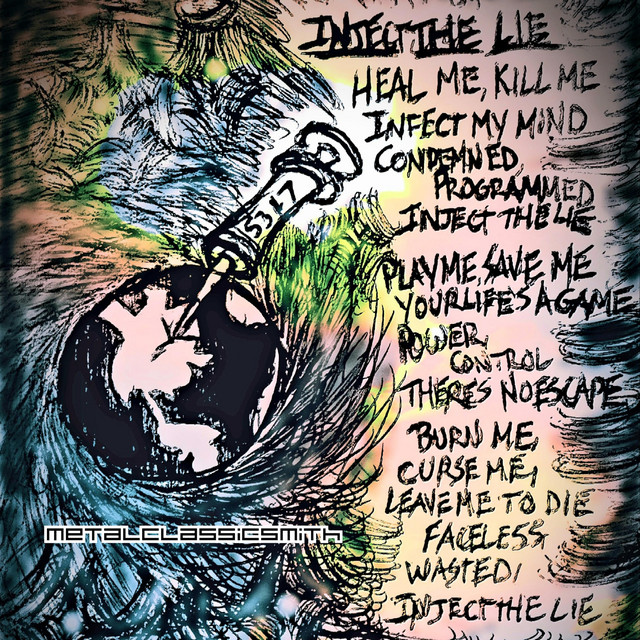 INJECT THE LIE
HEAL ME, KILL ME
INFECT MY MIND
CONDEMNED,
PROGRAMMED
INJECT THE LIE
PLAY ME, SAVE ME
YOUR LIFE'S A GAME
POWER,
CONTROL
THERE'S NO ESCAPE
BURN ME,
CURSE ME,
LEAVE ME TO DIE
FACELESS
WASTED,
INJECT THE LIE
metalclassicsmith